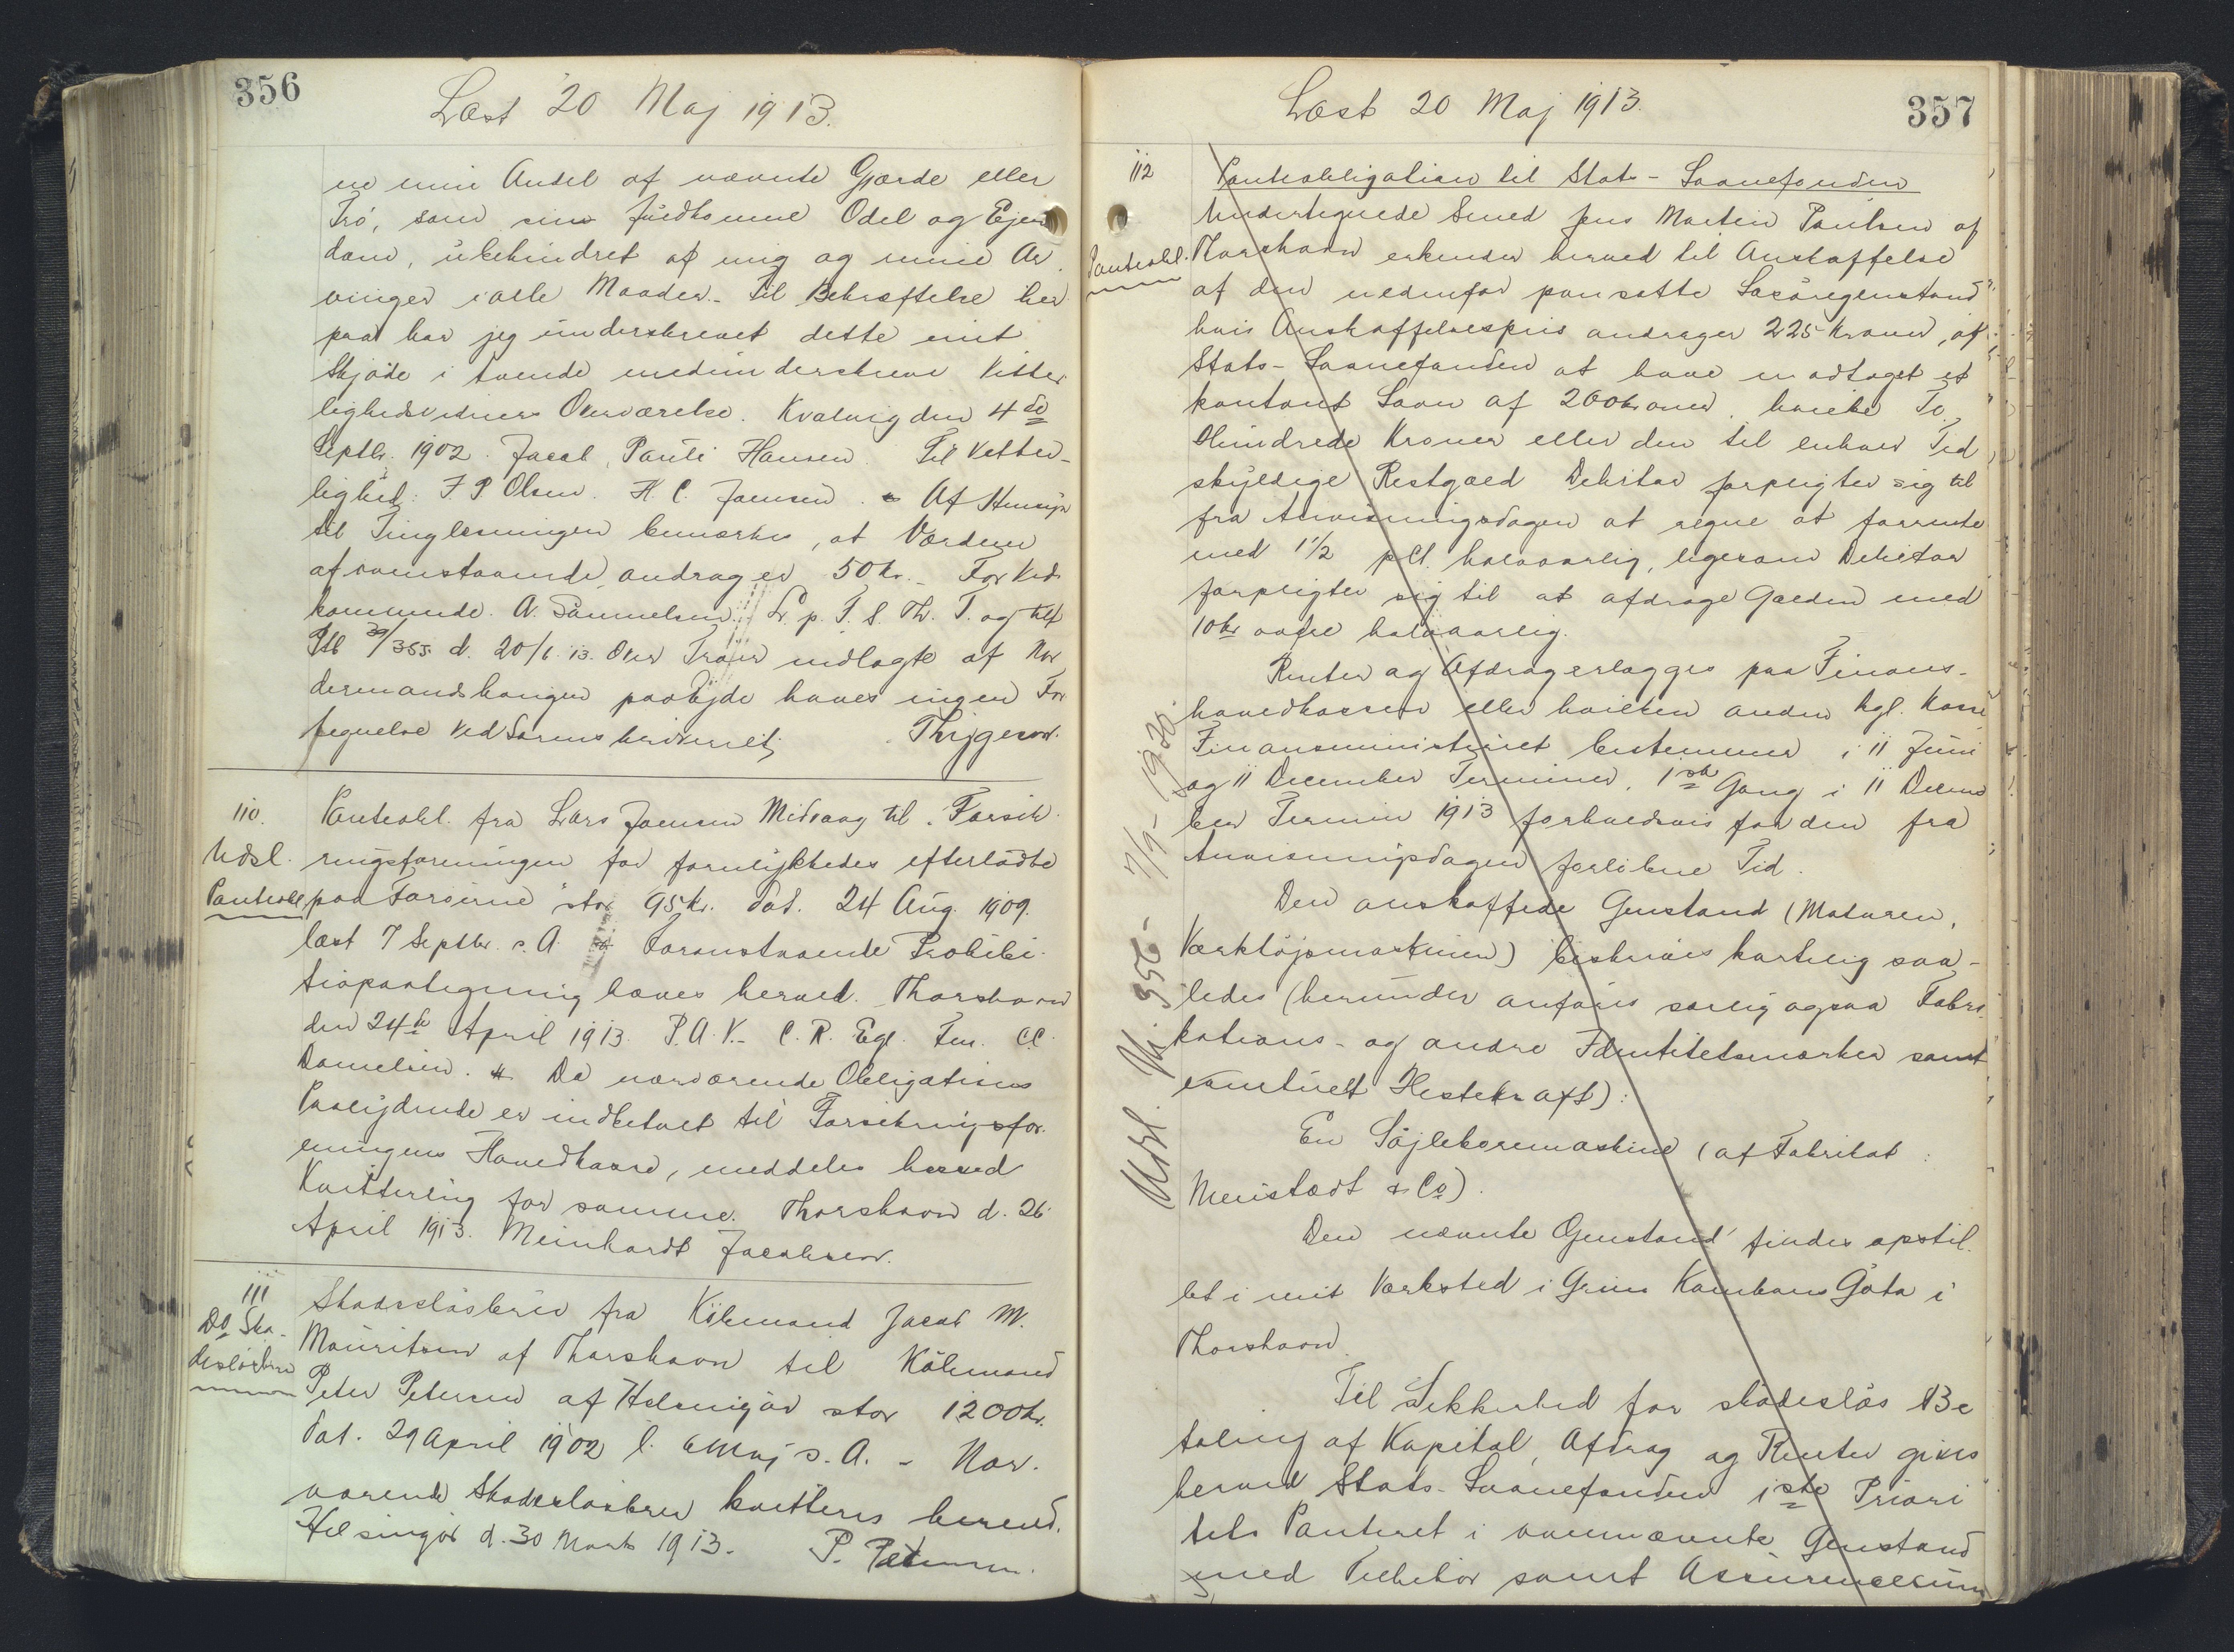 356
Læst 20 Maj 1913.
ne min Andel af nævnte Gjærde eller
Trö, som sin fuldkomne Odel og Ejen
dom, ubehindret af mig og mine Ar
vinger i alle Maader. Til Bekræftelse her
paa har jeg underskrevet dette mit
Skjöde i tvende medunderskrevne Vitter
lighedsvidners Overværelse. Kvalvig den 4de
Septbr. 1902. Jacob Pauli Hansen. Til Vitter-
lighed: J. P. Olsen. H. C. Joensen. Af Hensyn
til Tinglæsningen bemærkes, at Værdien
af ovenstaaende andrager 50 kr. For Ved
kommende. A. Samuelsen L. p. T. S. Th. T. og
39/355 d. 20/6 13. Over Tröer indlagte af Nor
dermandshaugen paa Ejde haves ingen For
tegnelse ved Sorenskriveriet;
Thygesen.
110.
Udsl.
Panteobl
Panteobl. fra Lars Joensen Midvaag til "Forsik
ringsforeningen for forulykkedes efterladte
paa Færöerne" stor 95 kr. dat. 24 Aug. 1909.
læst 7 Septbr. s. A. Foranstaaende Prohibi
tivpaategning hæves herved. Thorshavn
den 24de April 1913. P. A. V. C. R. Egl. Fm. CC.
Danielsen. Da nærværende Obligations
Paalydende er indbetalt til Forsikringsfor
eningens Hovedkasse, meddeles herved
Kvittering for samme. Thorshavn d. 26
April 1913. Meinhardt Jacobsen.
111
Do Ska-
deslösbrev
Skadeslösbrev fra Köbmand Jacob M.
Mouritsen af Thorshavn til Köbmand
Peter Petersen af Helsingör stor 1200 kr.
dat. 29 April 1902 l. 6 Maj s. A. - Nær-
værende Skadeslösbrev kvitteres herved.
Helsingör d. 30 Marts 1913. P. Petersen.
357
Læst 20 Maj 1913.
112
Panteobl.
Panteobligation til Stats-Laanefonden
Undertegnede Smed Jens Martin Poulsen af
Thorshavn erkender herved til Anskaffelse
af den nedenfor pansatte Lösöregenstand
hvis Anskaffelsespris andrager 225 Kroner, af
Stats-Laanefonden at have modtaget et
kontant Laan af 200 kroner, hvilke To
Hundrede Kroner eller den til enhver Tid
skyldige Restgæld Debitor forpligter sig til
fra Anvisningsdagen at regne at forrente
med 1 1/2 pCt. halvaarlig, ligesom Debitor
forpligter sig til at afdrage Gælden med
10 kr halvaarlig.
Renter og Afdrag erlægges paa Finans-
hovedkassen eller hvilken anden kgl. Kasse
Finansministeriet bestemmer i 11 Juni
og 11 December Terminer, 1ste Gang i 11 Decem
ber Termin 1913 forholdsvis for den fra
Anvisningsdagen forlöbne Tid.
Den anskaffede Genstand (Motoren,
Værktöjsmaskinen) beskrives kortelig saa-
ledes (herunder anföres særlig ogsaa Fabri
kations- og andre Identitetsmærker samt
eventuelt Hestekraft):
En Söjleboremaskine (af Fabrikat:
Meustædt & Co).
Den nævnte Genstand findes opstil
let i mit Værksted i Grims Kambans Göta i
Thorshavn.
Til Sikkerhed for skadeslös Be
taling af Kapital, Afdrag og Renter gives
herved Stats-Laanefonden 1ste Priori
tets Panteret i ovennævnte Genstand
med Tilbehör samt Assurancesum
Udsl. Pb. 556 - 7/9-1920.